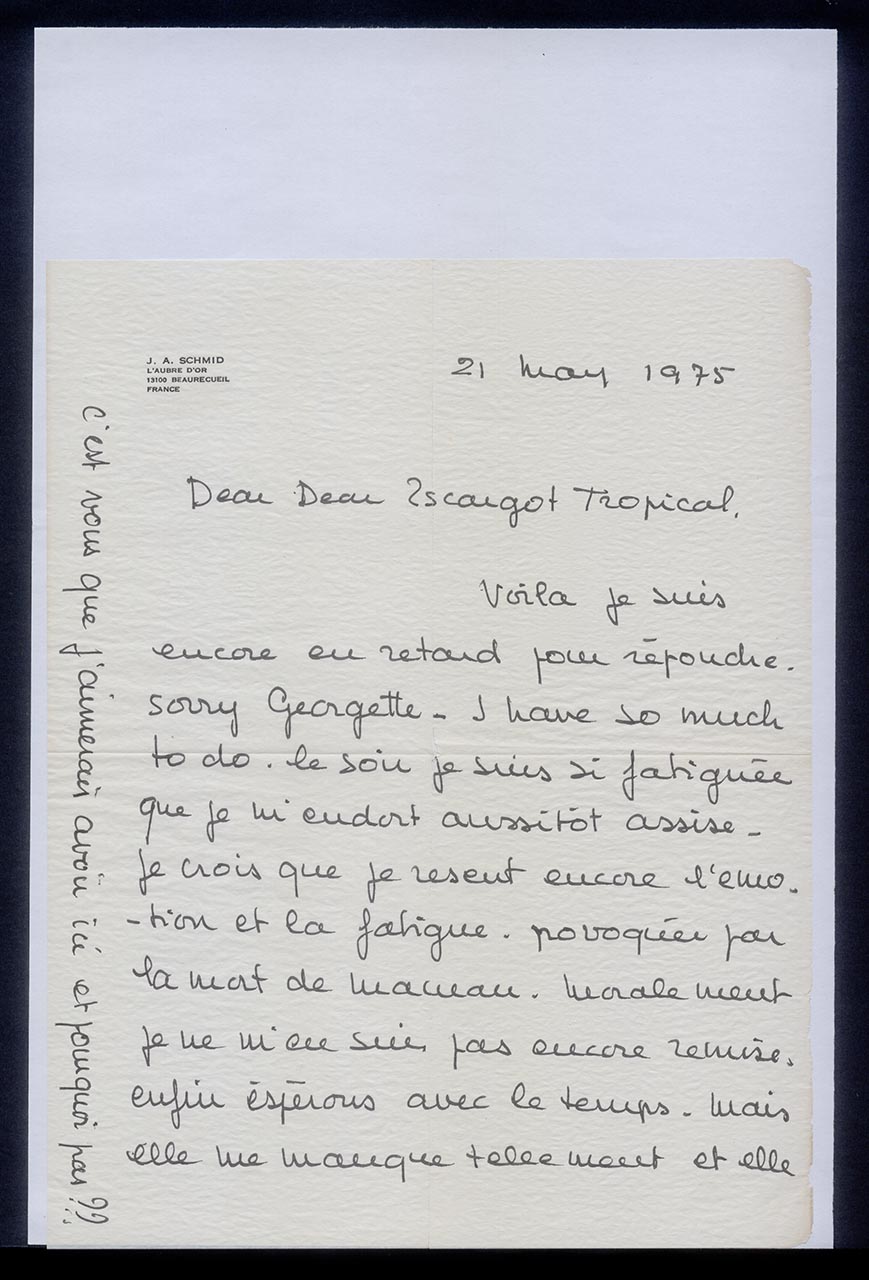 J. A. SCHMID
L'AUBRE D'OR
13100 BEAURECUEIL
FRANCE
21 May 1975
Dear Dear Escargot Tropical,
Voila je suis
encore en retard pour répondre.
sorry Georgette - I have so much
to do. le soir je suis si fatiguée
que je m'endort aussitôt assise -
je crois que je resent encore l'emo-
-tion et la fatigue. provoquée par
la mort de maman. Moralement
je ne m'en suis pas encore remise.
enfin éspérons avec le temps. Mais
elle me manque tellement et elle
c'est vous que j'aimerais avoir ici et pourquoi pas ??